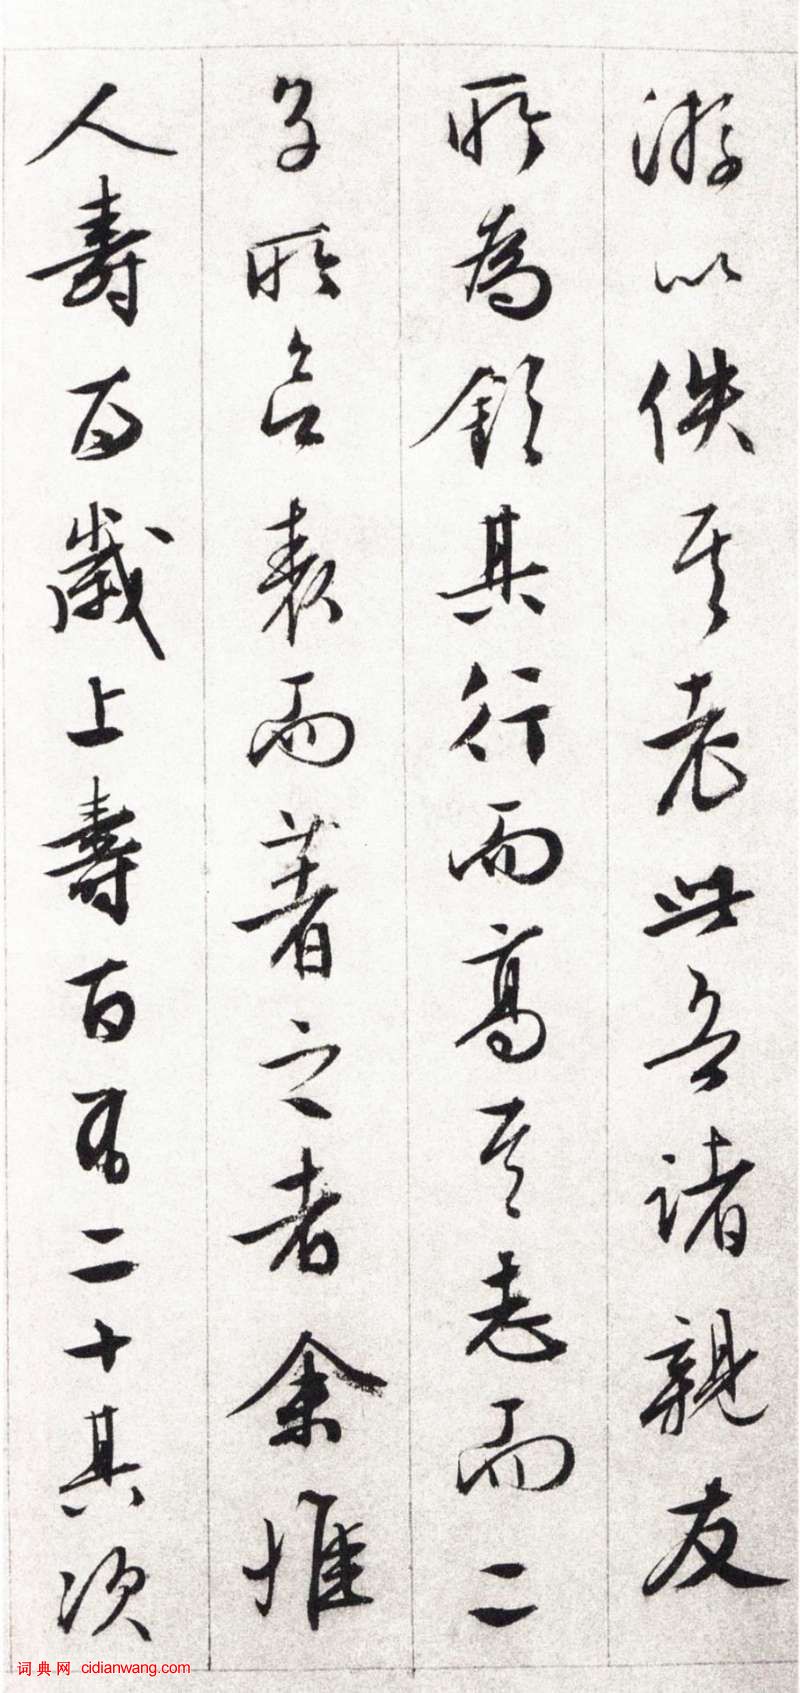 游以佚其老此吾諸親友
所為領其行而高其志而二
子所合表而著之者余惟
人壽百歲上壽百有二十其次
词典网 cidianwang.com